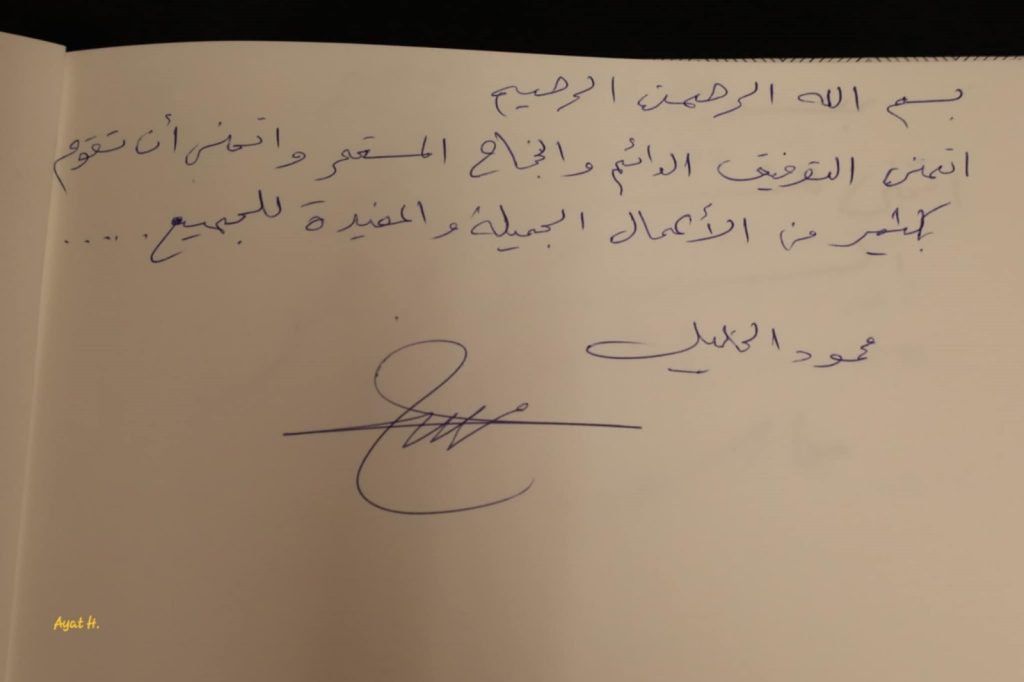 بسم الله الرحمن الرحيم
اتمنى التوفيق الدائم والنجاح المستمر واتمنى أن تقوم
بكثير من الأعمال الجميلة والمفيدة للجميع.....
محمود الخليل
Ayat H.